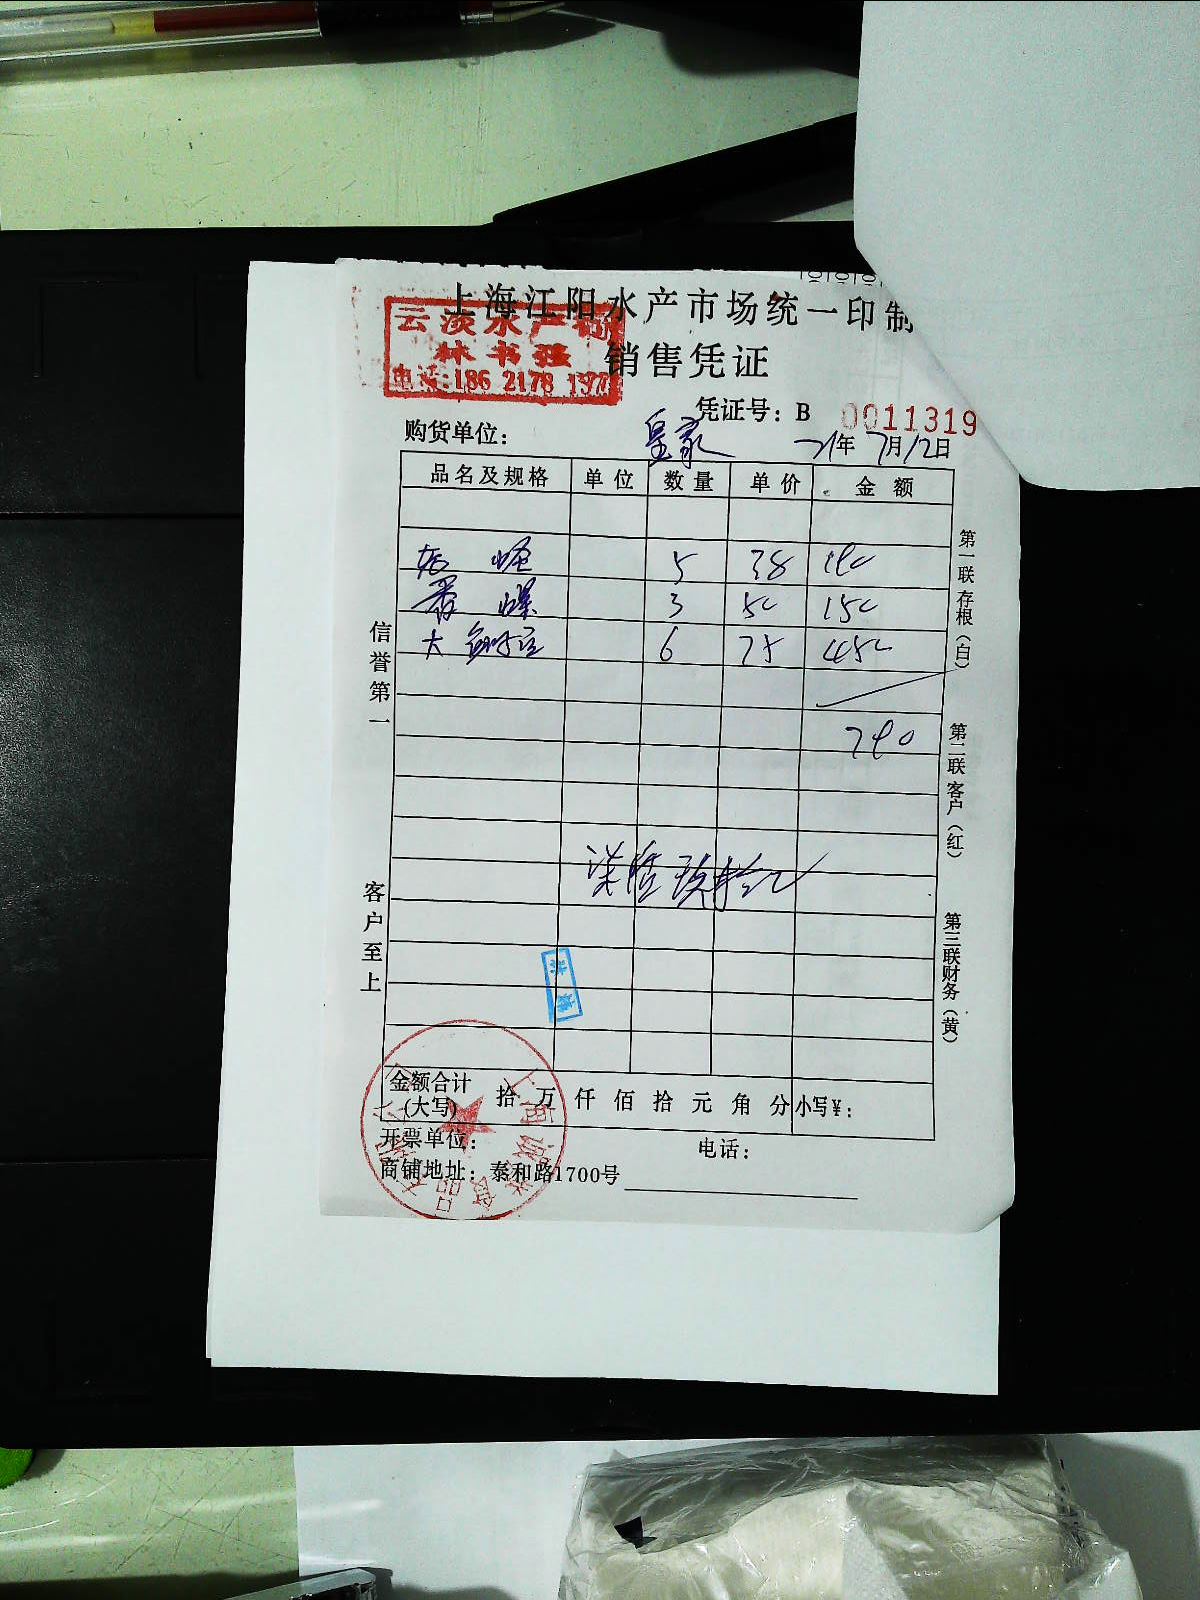 上海江阳水产市场统一印制
云淡水产
林书强
电话:186 2178 197
销售凭证
凭证号：B 0011319
购货单位： 皇家 21年7月12日
品名及规格 单位 数量 单价 金额
5 38 190
3 50 150
大 6 75 450
790
柒佰玖拾元
信誉第一
客户至上
第一联存根（白）
第二联客户（红）
第三联财务（黄）
金额合计(大写) 拾 万 仟 佰 拾 元 角 分 小写¥：
开票单位： 电话：
商铺地址：泰和路1700号